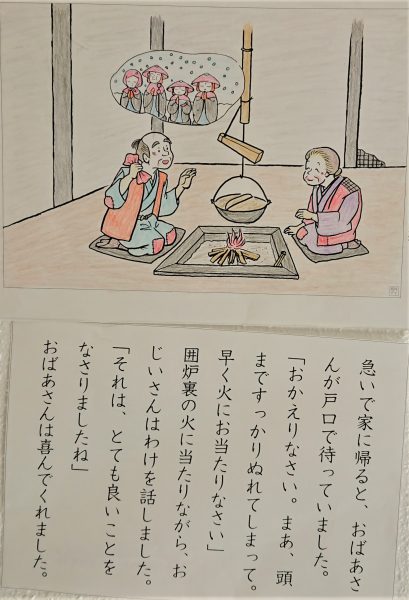 急いで家に帰ると、おばあさ
んが戸口で待っていました。
「おかえりなさい。まあ、頭
まですっかりぬれてしまって。
早く火にお当たりなさい」
囲炉裏の火に当たりながら、お
じいさんはわけを話しました。
「それは、とても良いことを
なさりましたね」
おばあさんは喜んでくれました。